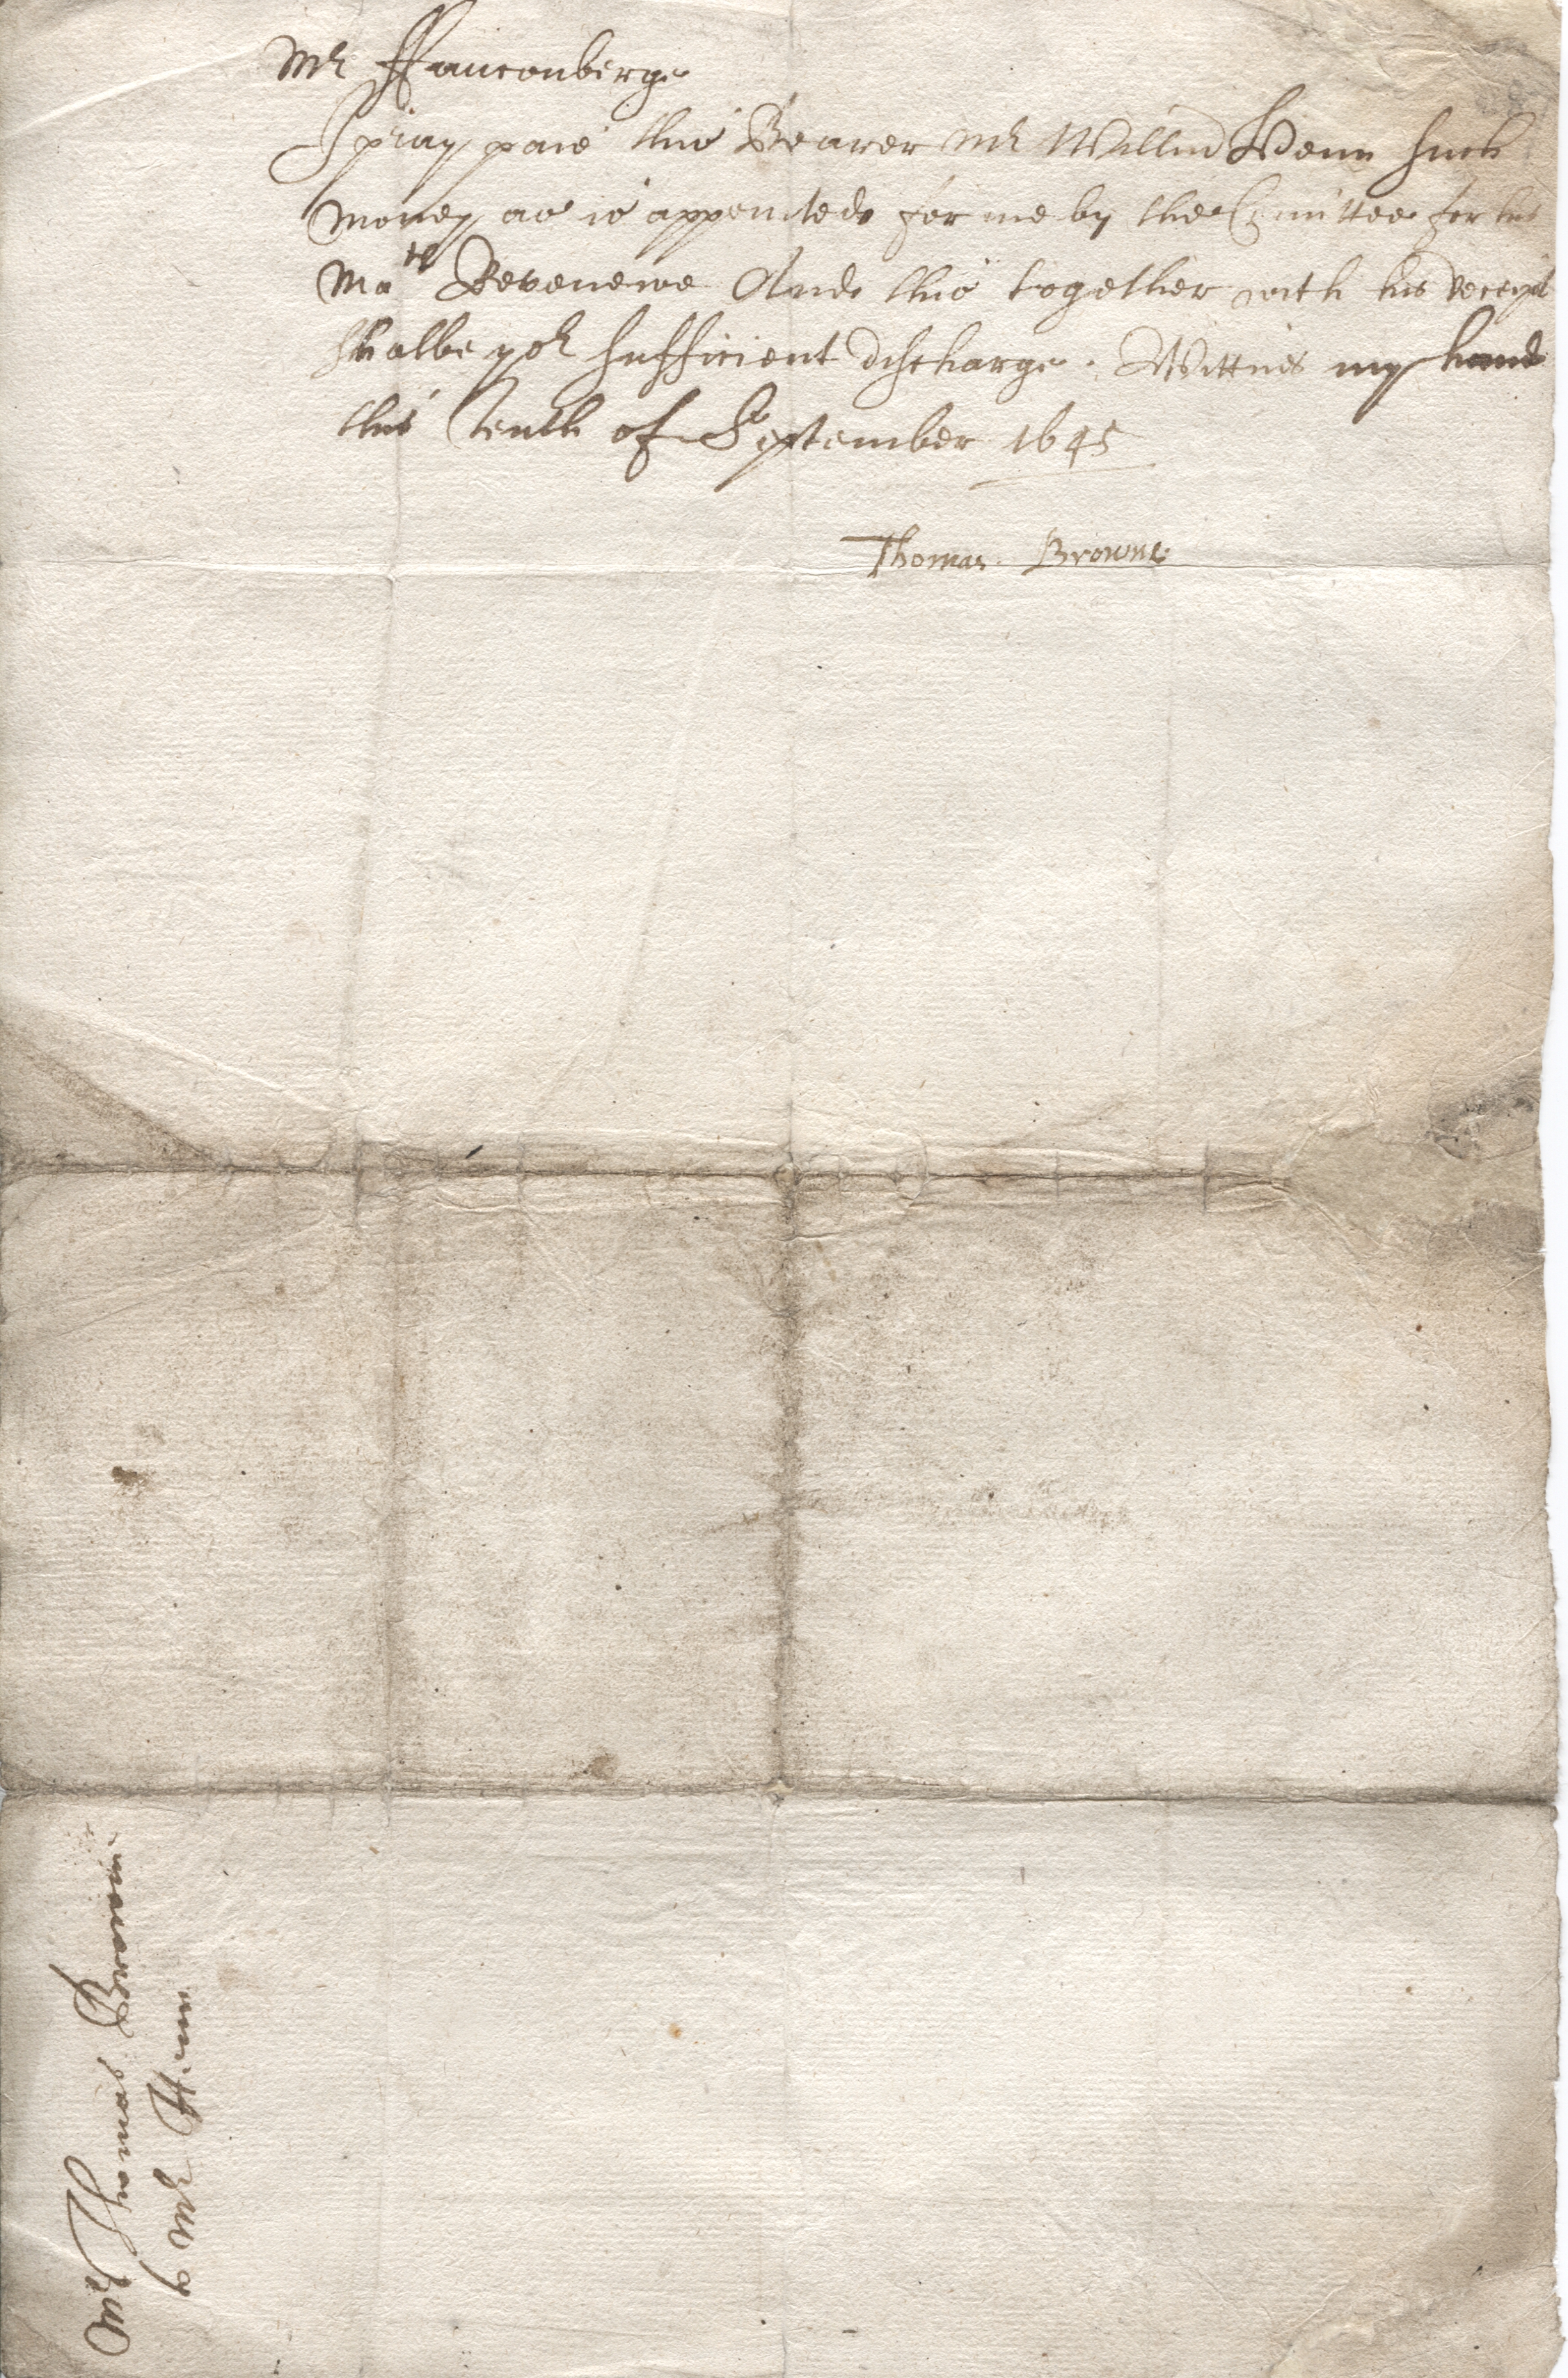 Mr ffauconberge
I pray paie this Bearer Mr Willm Venn such
money as is appointede for me by the Comittee for his
Mats Revenewe Ande this together with his receipt
shalbe yor sufficient discharge. Wittnes my hand
this tenth of September 1645
Thomas Browne
Mr Thomas Browne
Mr